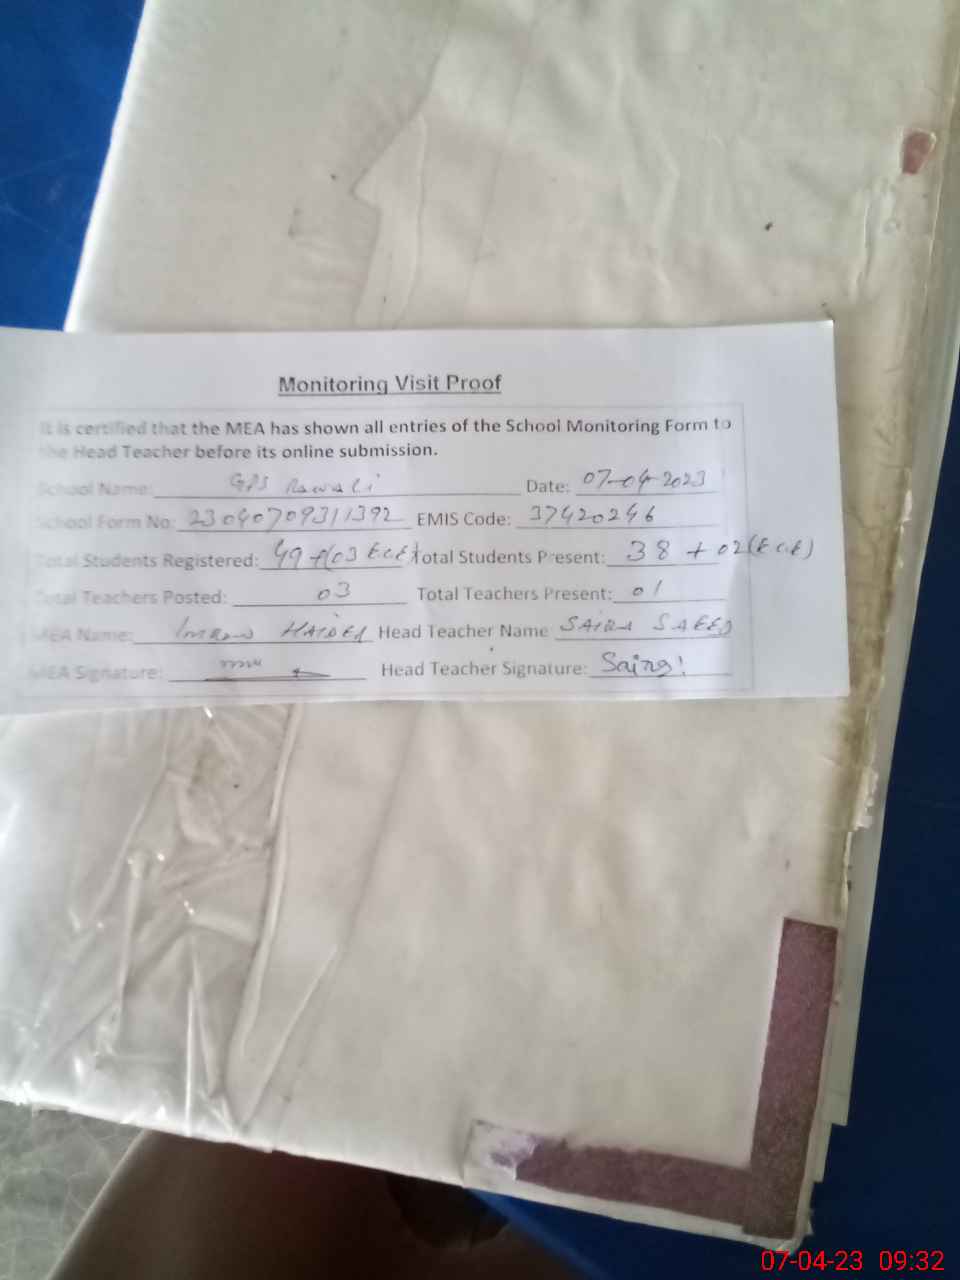 Monitoring Visit Proof
It is certified that the MEA has shown all entries of the School Monitoring Form to
the Head Teacher before its online submission.
School Name: GPS Rawali Date: 07-04-2023
School Form No: 23040709311392 EMIS Code: 37420246
Total Students Registered: 49 + (03 ECE) Total Students Present: 38 + 02 (ECE)
Total Teachers Posted: 03 Total Teachers Present: 01
MEA Name: Imran HAIDER Head Teacher Name SAIRA SAEED
MEA Signature: Head Teacher Signature:
07-04-23 09:32